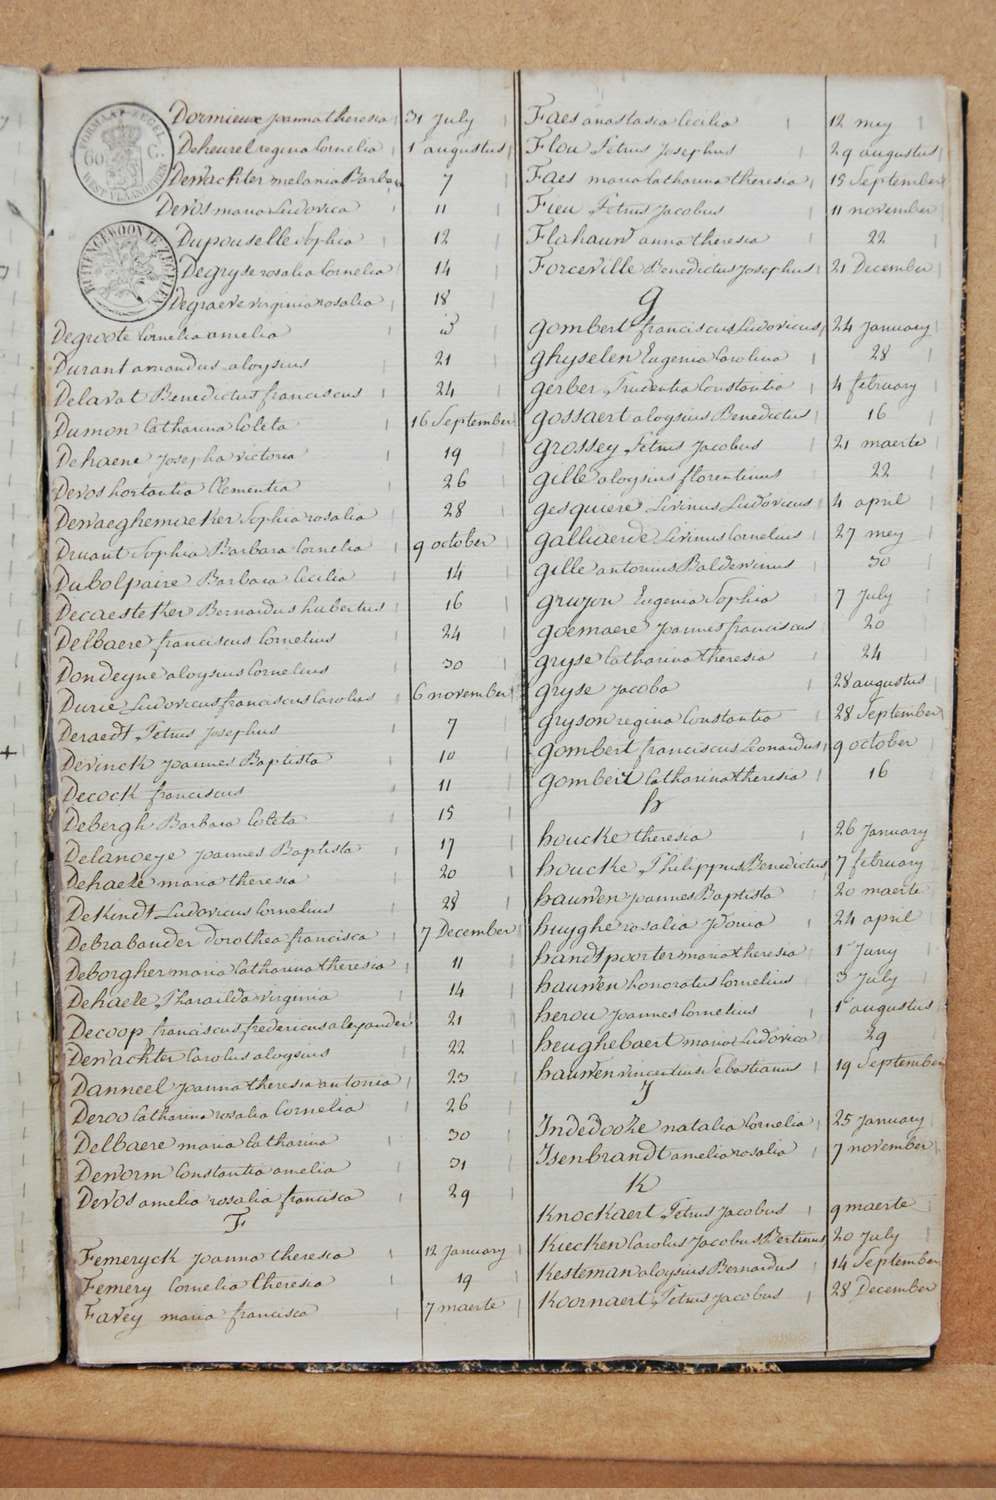 FORMAAT ZEGEL
60 C.
WEST VLAANDEREN
BUITENGEWOON TE ZEGELEN
Dormieux Joanna theresia 31 July
Deheurel regina Cornelia 1 augustus
Dewachter melania Barbara 7
Devos maria Ludovica 11
Dupouselle Sophia 12
Degryse rosalia Cornelia 14
Degraeve virginia rosalia 18
Degroote Cornelia amelia
Durant amandus aloysius 21
Delavat Benedictus franciscus 24
Dumon Catharina Coleta 16 September
Dehaene Josepha victoria 19
Devos hortantia Clementia 26
Dewaeghemaeker Sophia rosalia 28
Druant Sophia Barbara Cornelia 9 october
Dubolpaire Barbara Cecilia 14
Decaestether Bernardus hubertus 16
Delbaere franciscus Cornelius 24
Dondeyne aloysius Cornelius 30
Durie Ludovicus franciscus Carolus 6 november
Deraedt Petrus Josephus 7
Devinck Joannes Baptista 10
Decock franciscus 11
Debergh Barbara Coleta 15
Delanoeye Joannes Baptista 17
Dehaele maria theresia 20
DeKindt Ludovicus Cornelius 28
Debrabander Dorothea francisca 7 December
Deborgher maria Catharina theresia 11
Dehaele Pharailda virginia 14
Decoop franciscus fredericus alexander 21
Dewachter Carolus aloysius 22
Danneel Joanna theresia antonia 23
Deroo Catharina rosalia Cornelia 26
Delbaere maria Catharina 30
Deworm Constantia amelia 31
Devos amelia rosalia francisca 29
F
Femeryck Joanna theresia 12 January
Femery Cornelia theresia 19
Favey maria francisca 7 maerte
Faes anastasia Cecilia 12 mey
Flou Petrus Josephus 29 augustus
Faes maria Catharina theresia 15 September
Fieu Petrus Jacobus 11 november
Flahauw anna theresia 22
Forceville Benedictus Josephus 21 December
g
gombert franciscus Ludovicus 24 January
ghyselen Eugenia Carolina 28
gerber Prudentia Constantia 4 february
gossaert aloysius Benedictus 16
grossey Petrus Jacobus 21 maerte
gille aloysius florentinus 22
gesquiere Livinus Ludovicus 4 april
galliaerde Livinus Cornelius 27 mey
gille antonius Baldewinus 30
gruzon Eugenia Sophia 7 July
goemaere Joannes franciscus 20
gryse Catharina theresia 24
gryse Jacoba 28 augustus
gryson regina Constantia 28 September
gombert franciscus Leonardus 9 october
gombert Catharina theresia 16
h
houcke theresia 26 January
houcke Philippus Benedictus 7 february
hauwen Joannes Baptista 20 maerte
huyghe rosalia Idonia 24 april
handtpoorter maria theresia 1 Juny
hauwen honoratus Cornelius 3 July
herou Joannes Cornelius 1 augustus
heughebaert maria Ludovica 29
hauwen vincentius Sebastianus 19 September
J
Indedooze natalia Cornelia 25 January
Isenbrandt amelia rosalia 7 november
K
Knockaert Petrus Jacobus 9 maerte
Kiecken Carolus Jacobus Bertinus 20 July
Kesteman aloysius Bernardus 14 September
Koornaert Petrus Jacobus 28 December